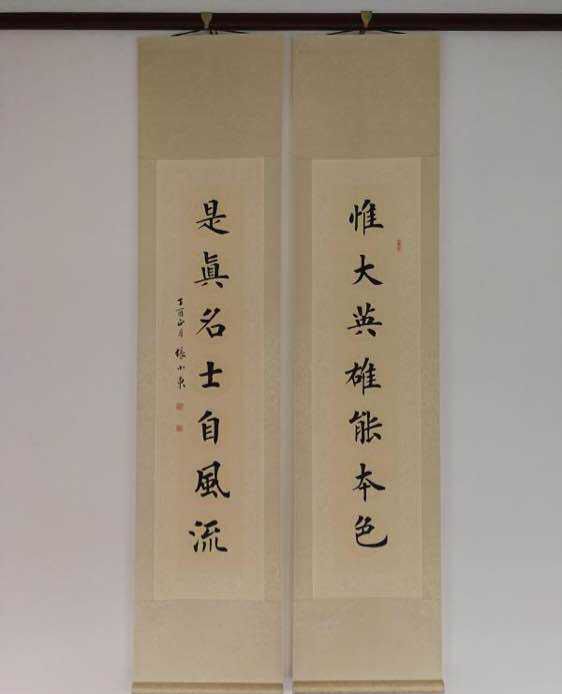 惟大英雄能本色
是眞名士自風流
丁酉正月 張小東